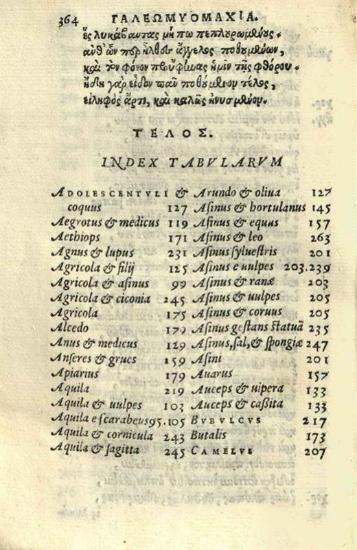 364 ΓΑΛΕΩΜΥΟΜΑΧΙΑ.
ἐς λυκάβαντας μήπω πεπληρωμένους.
ἀνθ' ὧν περιῆλθεν ἄγγελος ποθουμένων,
καὶ τὸν φόνον ἡμῖν τῆς φθορᾶς.
ἤδη γὰρ εἶδον πᾶν ποθούμενον τέλος,
εἰληφὸς ἄρτι, καὶ καλῶς ἠνυσμένον.
ΤΕΛΟΣ.
INDEX TABVLARVM
ADOLESCENTVLI &
coquus 127
Aegrotus & medicus 119
Aethiops 171
Agnus & lupus 231
Agricola & filij 125
Agricola & asinus 99
Agricola & ciconia 245
Agricola 175
Alcedo 179
Anus & medicus 129
Anseres & grues 159
Apiarius 179
Aquila 219
Aquila & uulpes 103
Aquila e scarabeus 95.105
Aquila & cornicula 243
Aquila & sagitta 245
Arundo & oliua 127
Asinus & hortulanus 145
Asinus & equus 157
Asinus & leo 263
Asinus syluestris 201
Asinus e uulpes 203.239
Asinus & ranæ 203
Asinus & uulpes 205
Asinus & coruus 205
Asinus gestans statuā 235
Asinus, sal, & spongiæ 247
Asini 201
Auarus 157
Auceps & uipera 133
Auceps & cassita 133
BVBVLCVS 217
Butalis 173
CAMELVS 207